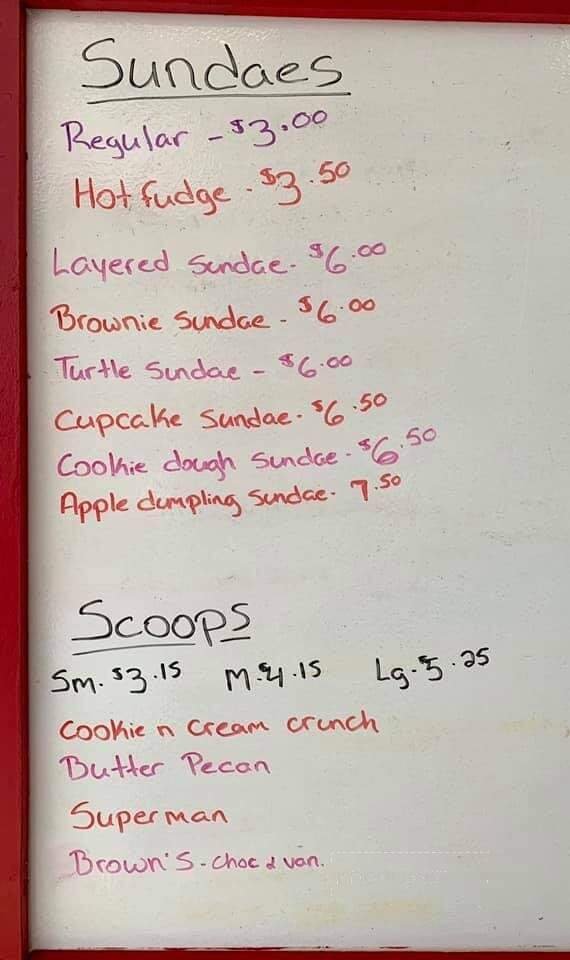 Sundaes
Regular - $3.00
Hot fudge - $3.50
Layered Sundae - $6.00
Brownie Sundae - $6.00
Turtle Sundae - $6.00
Cupcake Sundae - $6.50
Cookie dough Sundae - $6.50
Apple dumpling Sundae - 7.50
Scoops
Sm. $3.15 M. $4.15 Lg. 5.25
Cookie n Cream crunch
Butter Pecan
Superman
Brown's - Choc & van.